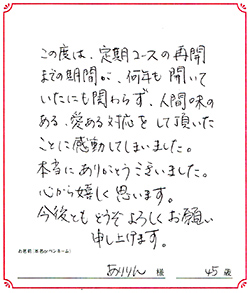 この度は、定期コースの再開
までの期間が、何年も開いて
いたにも関わらず、人間味の
ある、愛ある対応をして頂いた
ことに感動してしまいました。
本当にありがとうございました。
心から嬉しく思います。
今後ともどうぞよろしくお願い
申し上げます。
お名前(本名orペンネーム)
ありりん 様 45歳